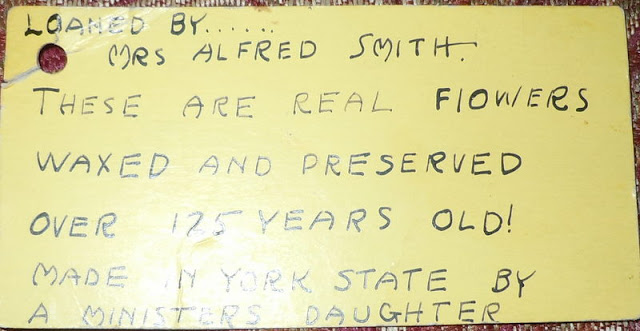 LOANED BY......
MRS ALFRED SMITH.
THESE ARE REAL FlOWERS
WAXED AND PRESERVED
OVER 125 YEARS OLD!
MADE IN YORK STATE BY
A MINISTERS DAUGHTER